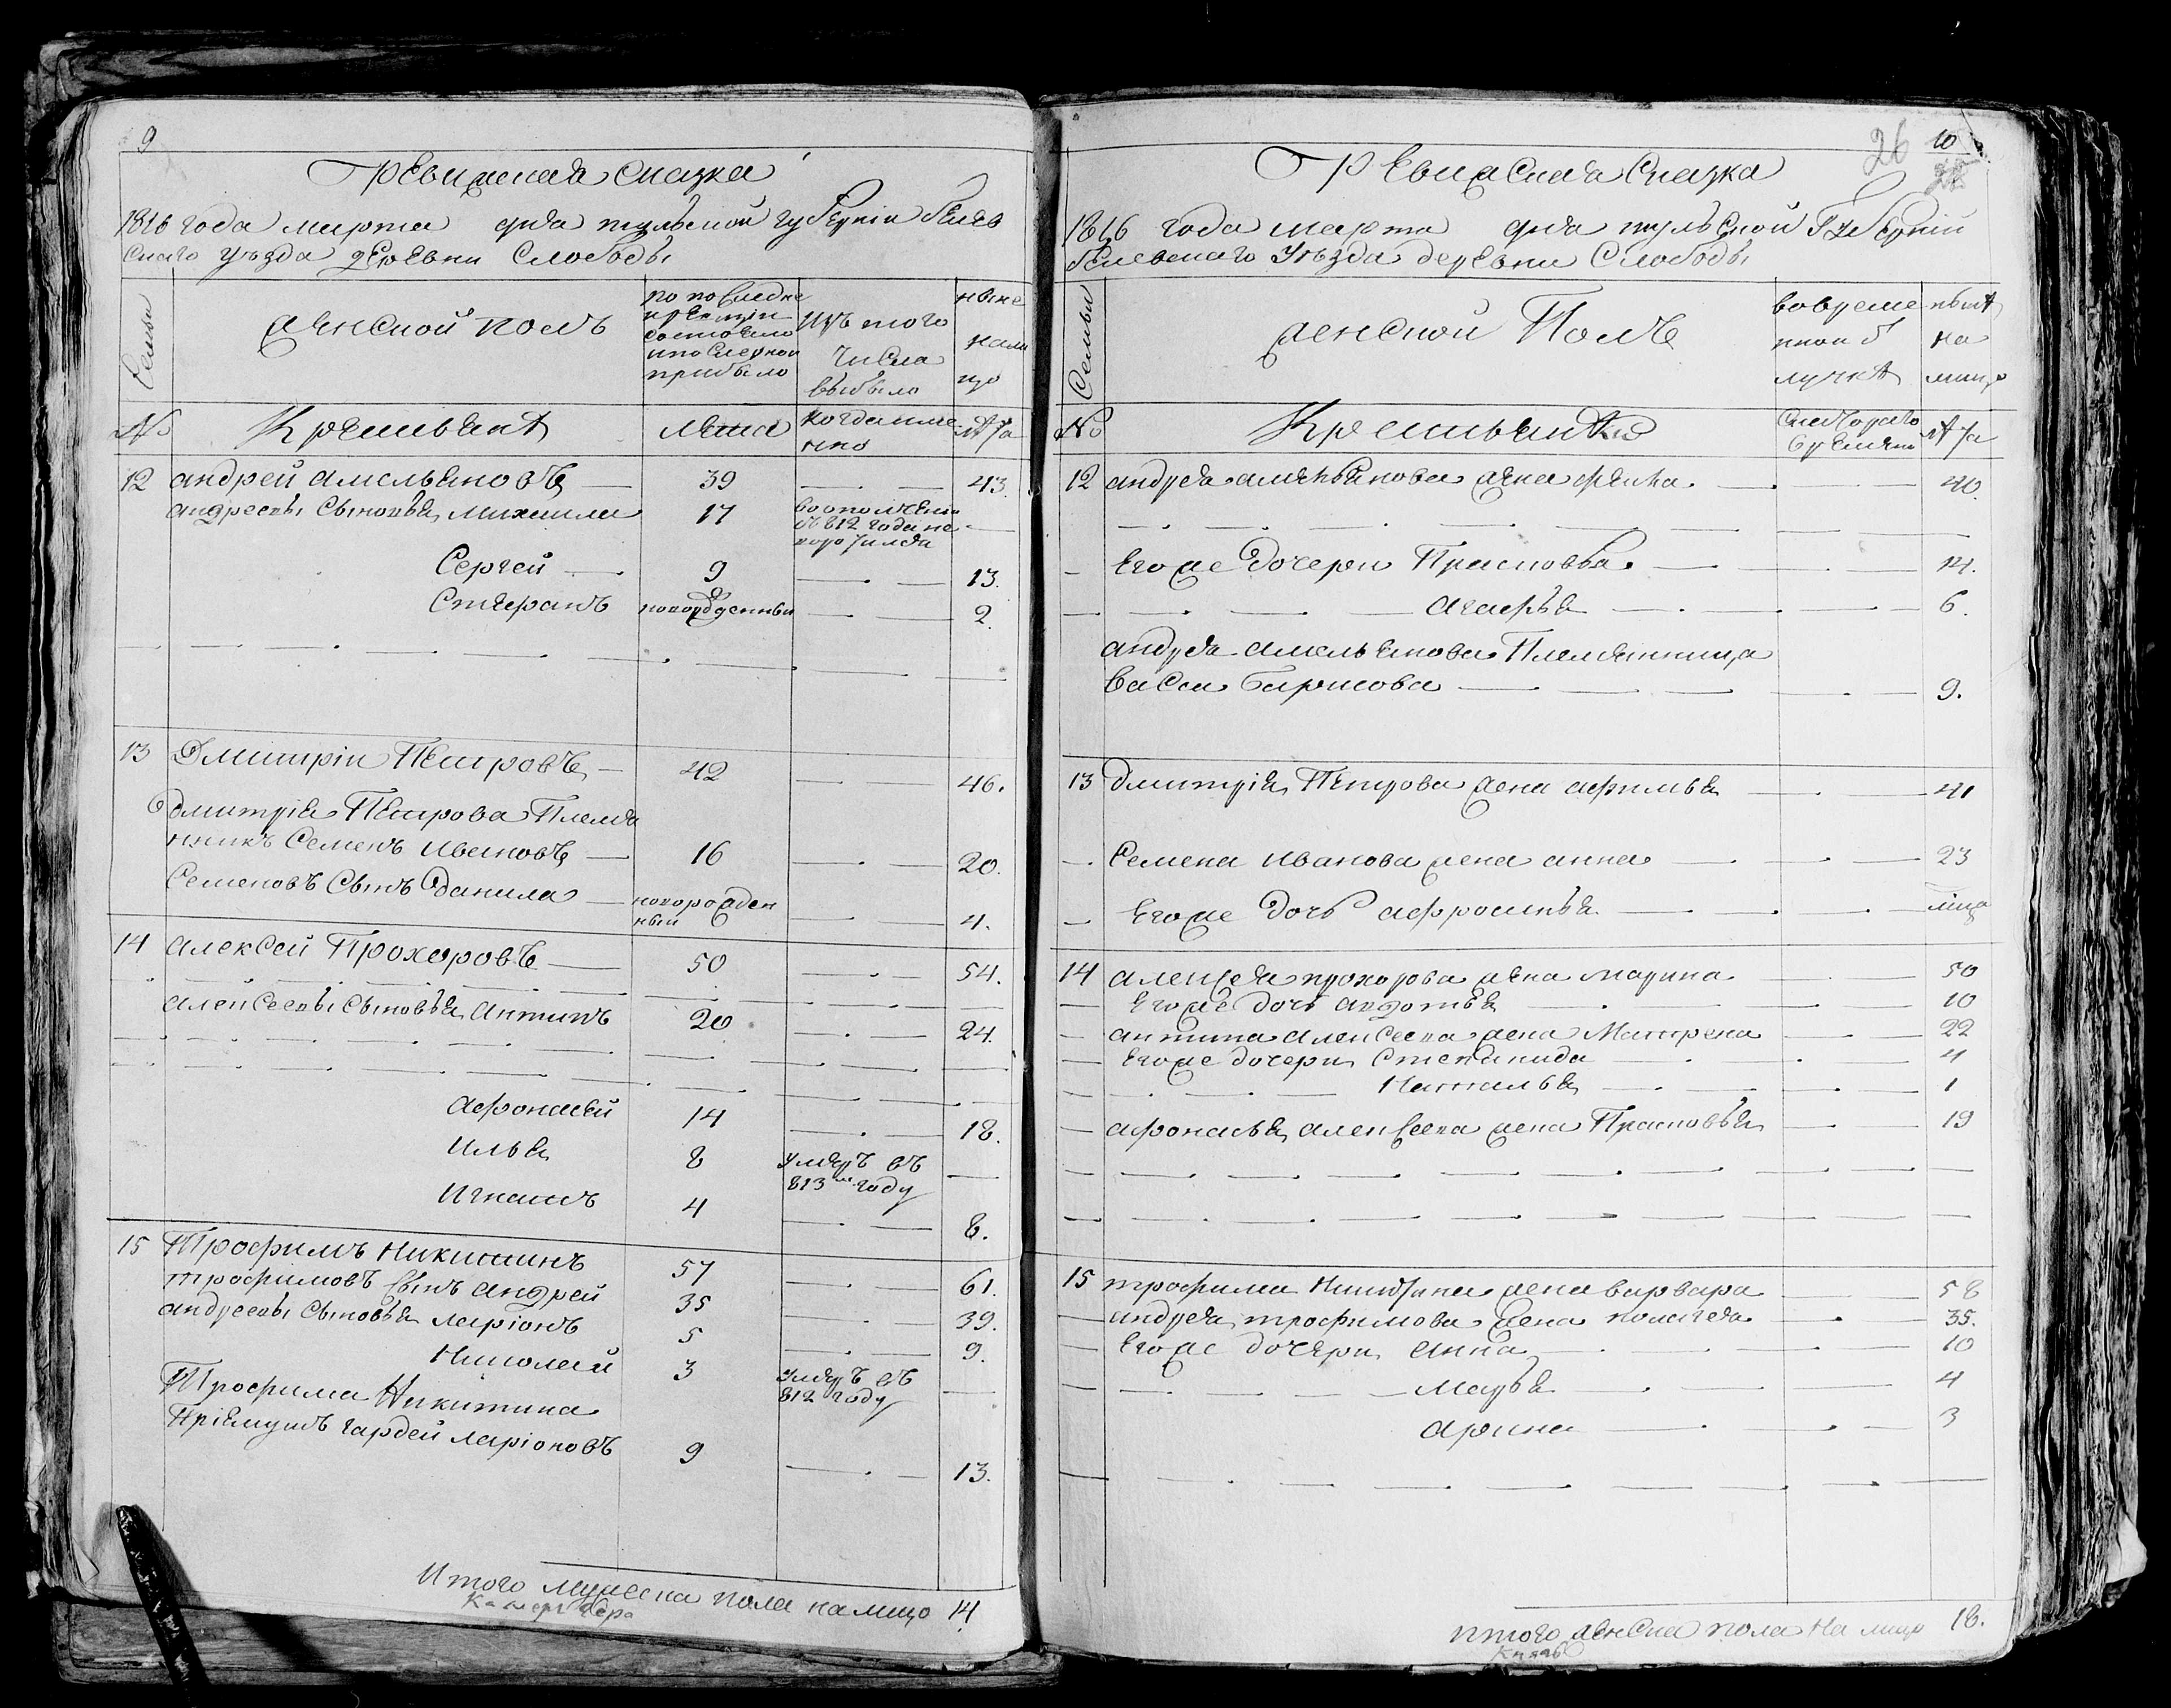 9
Ревижская сказка
1816 года марта дня тульской губернии белев
скаго уѣзда деревни Слободы
Семьи
женской полъ
по последне
и ревизiи
состояло
и после оной
прибыло
Изъ того
числа
выбыло
ныне
нали
цо
№
Крестьянѣ
лета
когда име
нно
лѣта
12 андрей амельяновъ — 39 — 43.
андреевы Сыновья михаила 17 во ополчении
съ 812 года не
Сергей — 9 — 13.
Стефанъ новорожденный — 2.
13 Дмитрiи Петровъ — 42 — 46.
дмитрiя Петрова Племя
нникъ Семенъ Ивановъ — 16 — 20.
Семеновъ Сынъ данила — новорожден
ный — 4.
14 алексей Прохоровъ — 50 — 54.
алексеевы Сыновья Антипъ 20 — 24.
афонасей 14 — 18.
Илья 8 умеръ въ
813м году —
Игнатъ 4 — 8.
15 Трофимъ Никитинъ 57 — 61.
трофимовъ Сынъ андрей 35 — 39.
андреевы Сыновья ларiонъ 5 — 9.
Николай 3 умеръ въ
812 году —
Трофима Никитина
Прiемышъ гардей ларiоновъ 9 — 13.
Итого мужеска пола налицо 14
26
10
Ревижская Сказка
1816 года марта дня тульской Губернiй
белевскаго Уѣзда деревни Слободы
Семьи
женской Полъ
во време
нной б
лучкѣ
нынѣ
на
лицо
№
Крестьянѣ
Скотораго
времяни
лѣта
12 андрея амельянова жена фекла — 40.
— Егоже дочери Прасковья — 14.
— агафья — 6.
андрея амельянова Племянница
васса Барисова — 9.
13 дмитрiя Петрова жена афимья — 41
— Семена Иванова жена анна — 23
— Егоже дочь афросинья —
14 алексея прохорова жена марина — 50
— Егоже дочь авдотья — 10
— антипа алексеева жена Матрена — 22
— Егоже дочери Степанида — 4
— Наталья — 1
— афонасья алексеева жена Прасковья — 19
15 трофима Никитина жена варвара — 58
— андрея трофимова жена пологея — 35.
— Егоже дочери анна — 10
— Марья — 4
арина — 3
итого женска пола На лицо 18.
Князь